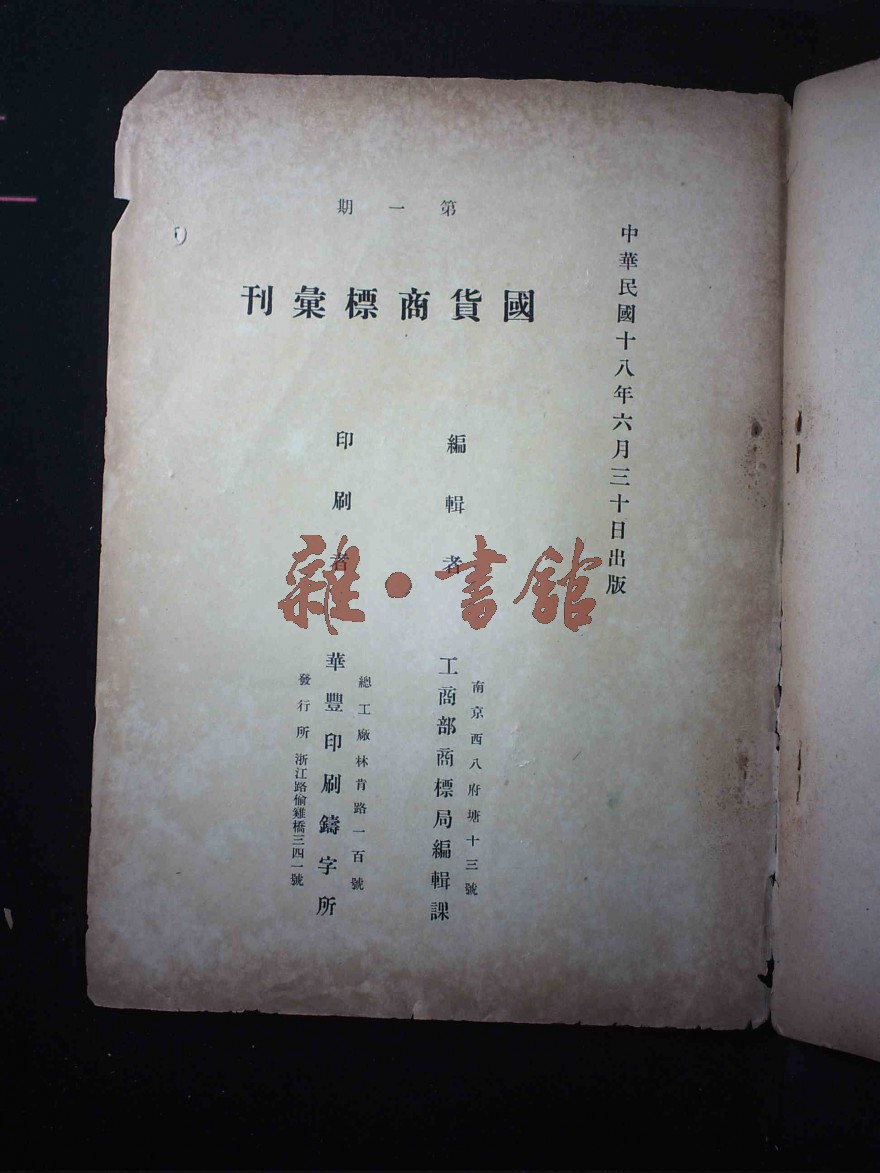 中華民國十八年六月三十日出版
第一期
國貨商標彙刊
編輯者
南京西八府塘十三號
工商部商標局編輯課
印刷者
總工廠林肯路一百號
華豐印刷鑄字所
發行所浙江路偷雞橋三四一號
雜·書館